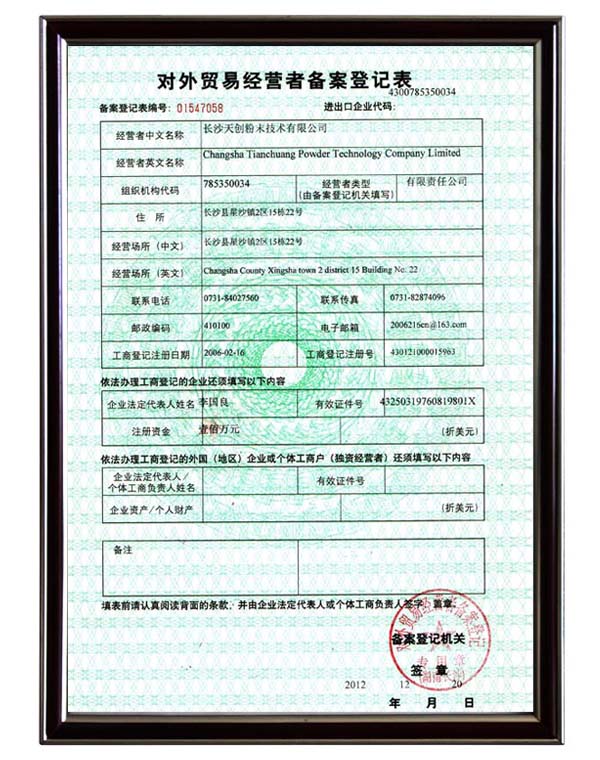 对外贸易经营者备案登记表
4300785350034
备案登记表编号: 01547058 进出口企业代码:
经营者中文名称 长沙天创粉末技术有限公司
经营者英文名称 Changsha Tianchuang Powder Technology Company Limited
组织机构代码 785350034 经营者类型 (由备案登记机关填写) 有限责任公司
住 所 长沙县星沙镇2区15栋22号
经营场所（中文） 长沙县星沙镇2区15栋22号
经营场所（英文） Changsha County Xingsha town 2 district 15 Building No. 22
联系电话 0731-84027560 联系传真 0731-82874096
邮政编码 410100 电子邮箱 2006216cn@163.com
工商登记注册日期 2006-02-16 工商登记注册号 430121000015963
依法办理工商登记的企业还须填写以下内容
企业法定代表人姓名 李国良 有效证件号 43250319760819801X
注册资金 壹佰万元 (折美元)
依法办理工商登记的外国（地区）企业或个体工商户（独资经营者）还须填写以下内容
企业法定代表人/ 个体工商负责人姓名 有效证件号
企业资产/个人财产 (折美元)
备注
填表前请认真阅读背面的条款，并由企业法定代表人或个体工商负责人签字、盖章。
对外贸易经营者备案登记
备案登记机关
专用章
签 章
2012 12 20
年 月 日